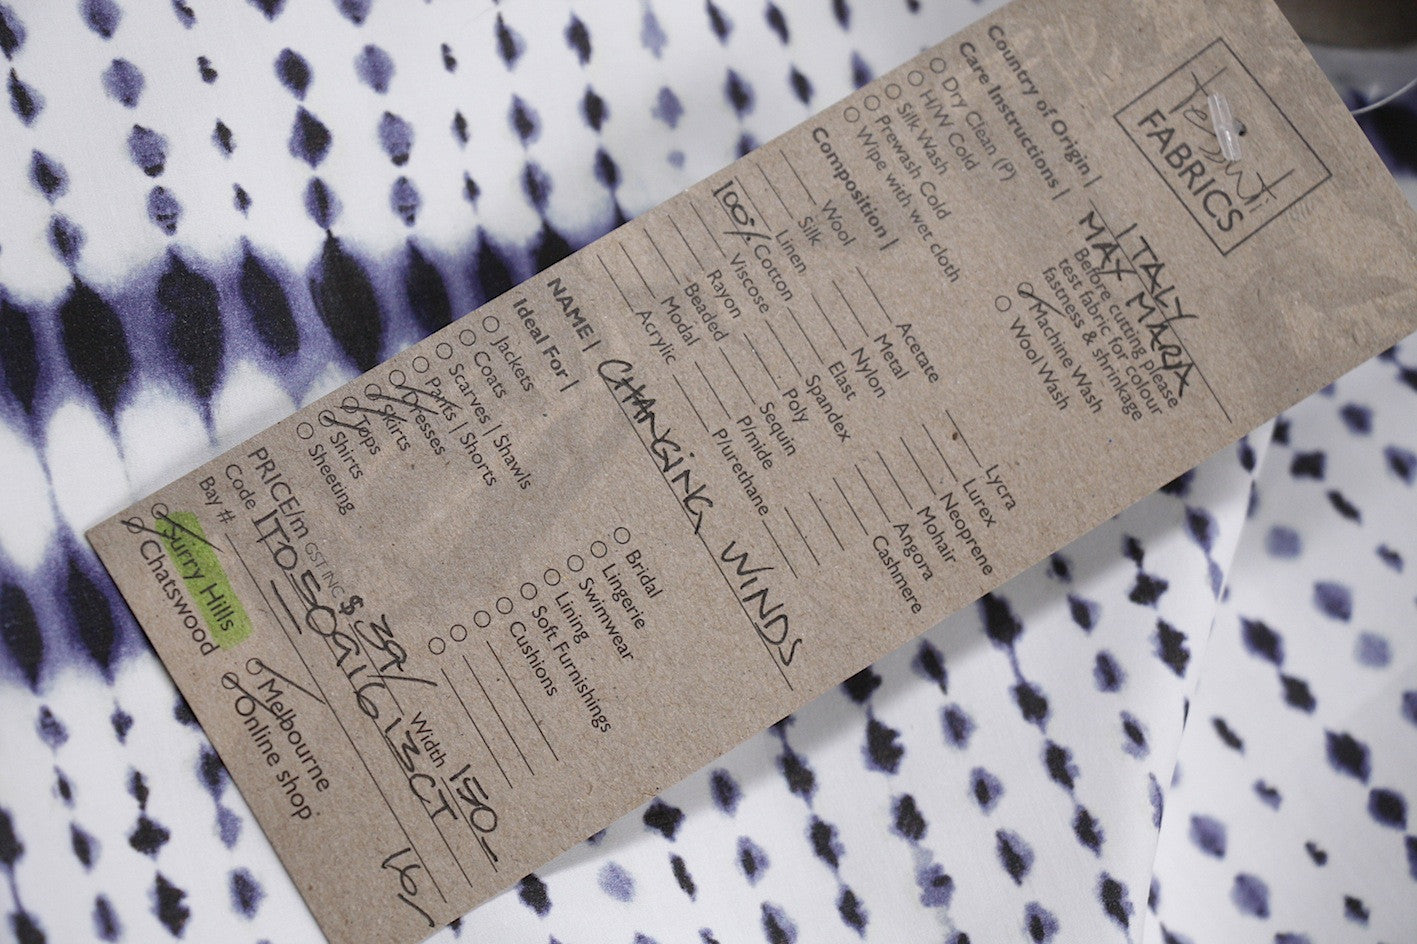 Tessuti
FABRICS
Country of Origin | ITALY
MAX MARA
Care Instructions |
Before cutting please
test fabric for colour
fastness & shrinkage
Dry Clean (P)
H/W Cold
Silk Wash
Prewash Cold
Wipe with wet cloth
Machine Wash
Wool Wash
Composition |
Wool
Silk
Linen
100% Cotton
Viscose
Rayon
Beaded
Modal
Acrylic
Acetate
Metal
Nylon
Elast
Spandex
Poly
Sequin
P/mide
P/urethane
Lycra
Lurex
Neoprene
Mohair
Angora
Cashmere
NAME | CHANGING WINDS
Ideal For |
Jackets
Coats
Scarves | Shawls
Pants | Shorts
Dresses
Skirts
Tops
Shirts
Sheeting
Bridal
Lingerie
Swimwear
Lining
Soft Furnishings
Cushions
PRICE/m GST INC $ 39/ Width 150
Code ITO5091613CT
Bay # 16
Surry Hills
Chatswood
Melbourne
Online shop